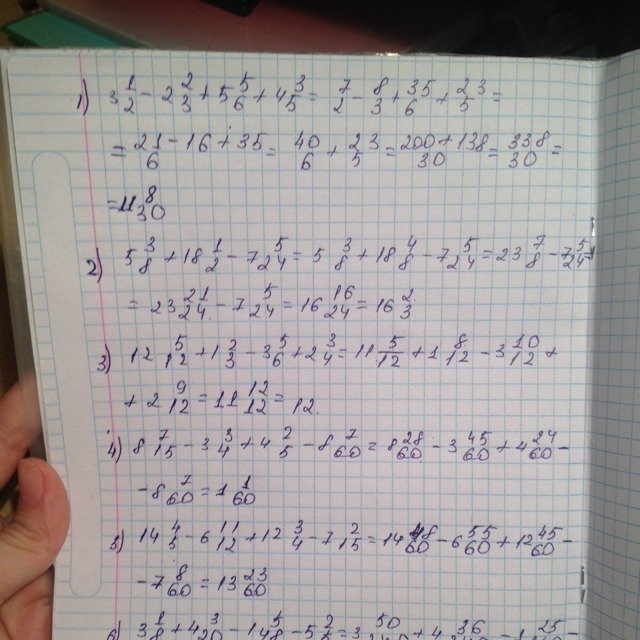 1) 3 1/2 - 2 2/3 + 5 5/6 + 4 3/5 = 7/2 - 8/3 + 35/6 + 23/5 =
= 21 - 16 + 35/6 = 40/6 + 23/5 = 200 + 138/30 = 338/30 =
= 11 8/30
2) 5 3/8 + 18 1/2 - 7 5/24 = 5 3/8 + 18 4/8 - 7 5/24 = 23 7/8 - 7 5/24 =
= 23 21/24 - 7 5/24 = 16 16/24 = 16 2/3.
3) 12 5/12 + 1 2/3 - 3 5/6 + 2 3/4 = 11 5/12 + 1 8/12 - 3 10/12 +
+ 2 9/12 = 11 12/12 = 12.
4) 8 7/15 - 3 3/4 + 4 2/5 - 8 7/60 = 8 28/60 - 3 45/60 + 4 24/60 -
- 8 7/60 = 1 1/60
5) 14 4/5 - 6 11/12 + 12 3/4 - 7 2/15 = 14 48/60 - 6 55/60 + 12 45/60 -
- 7 8/60 = 13 23/60
6) 3 1/8 + 4 3/20